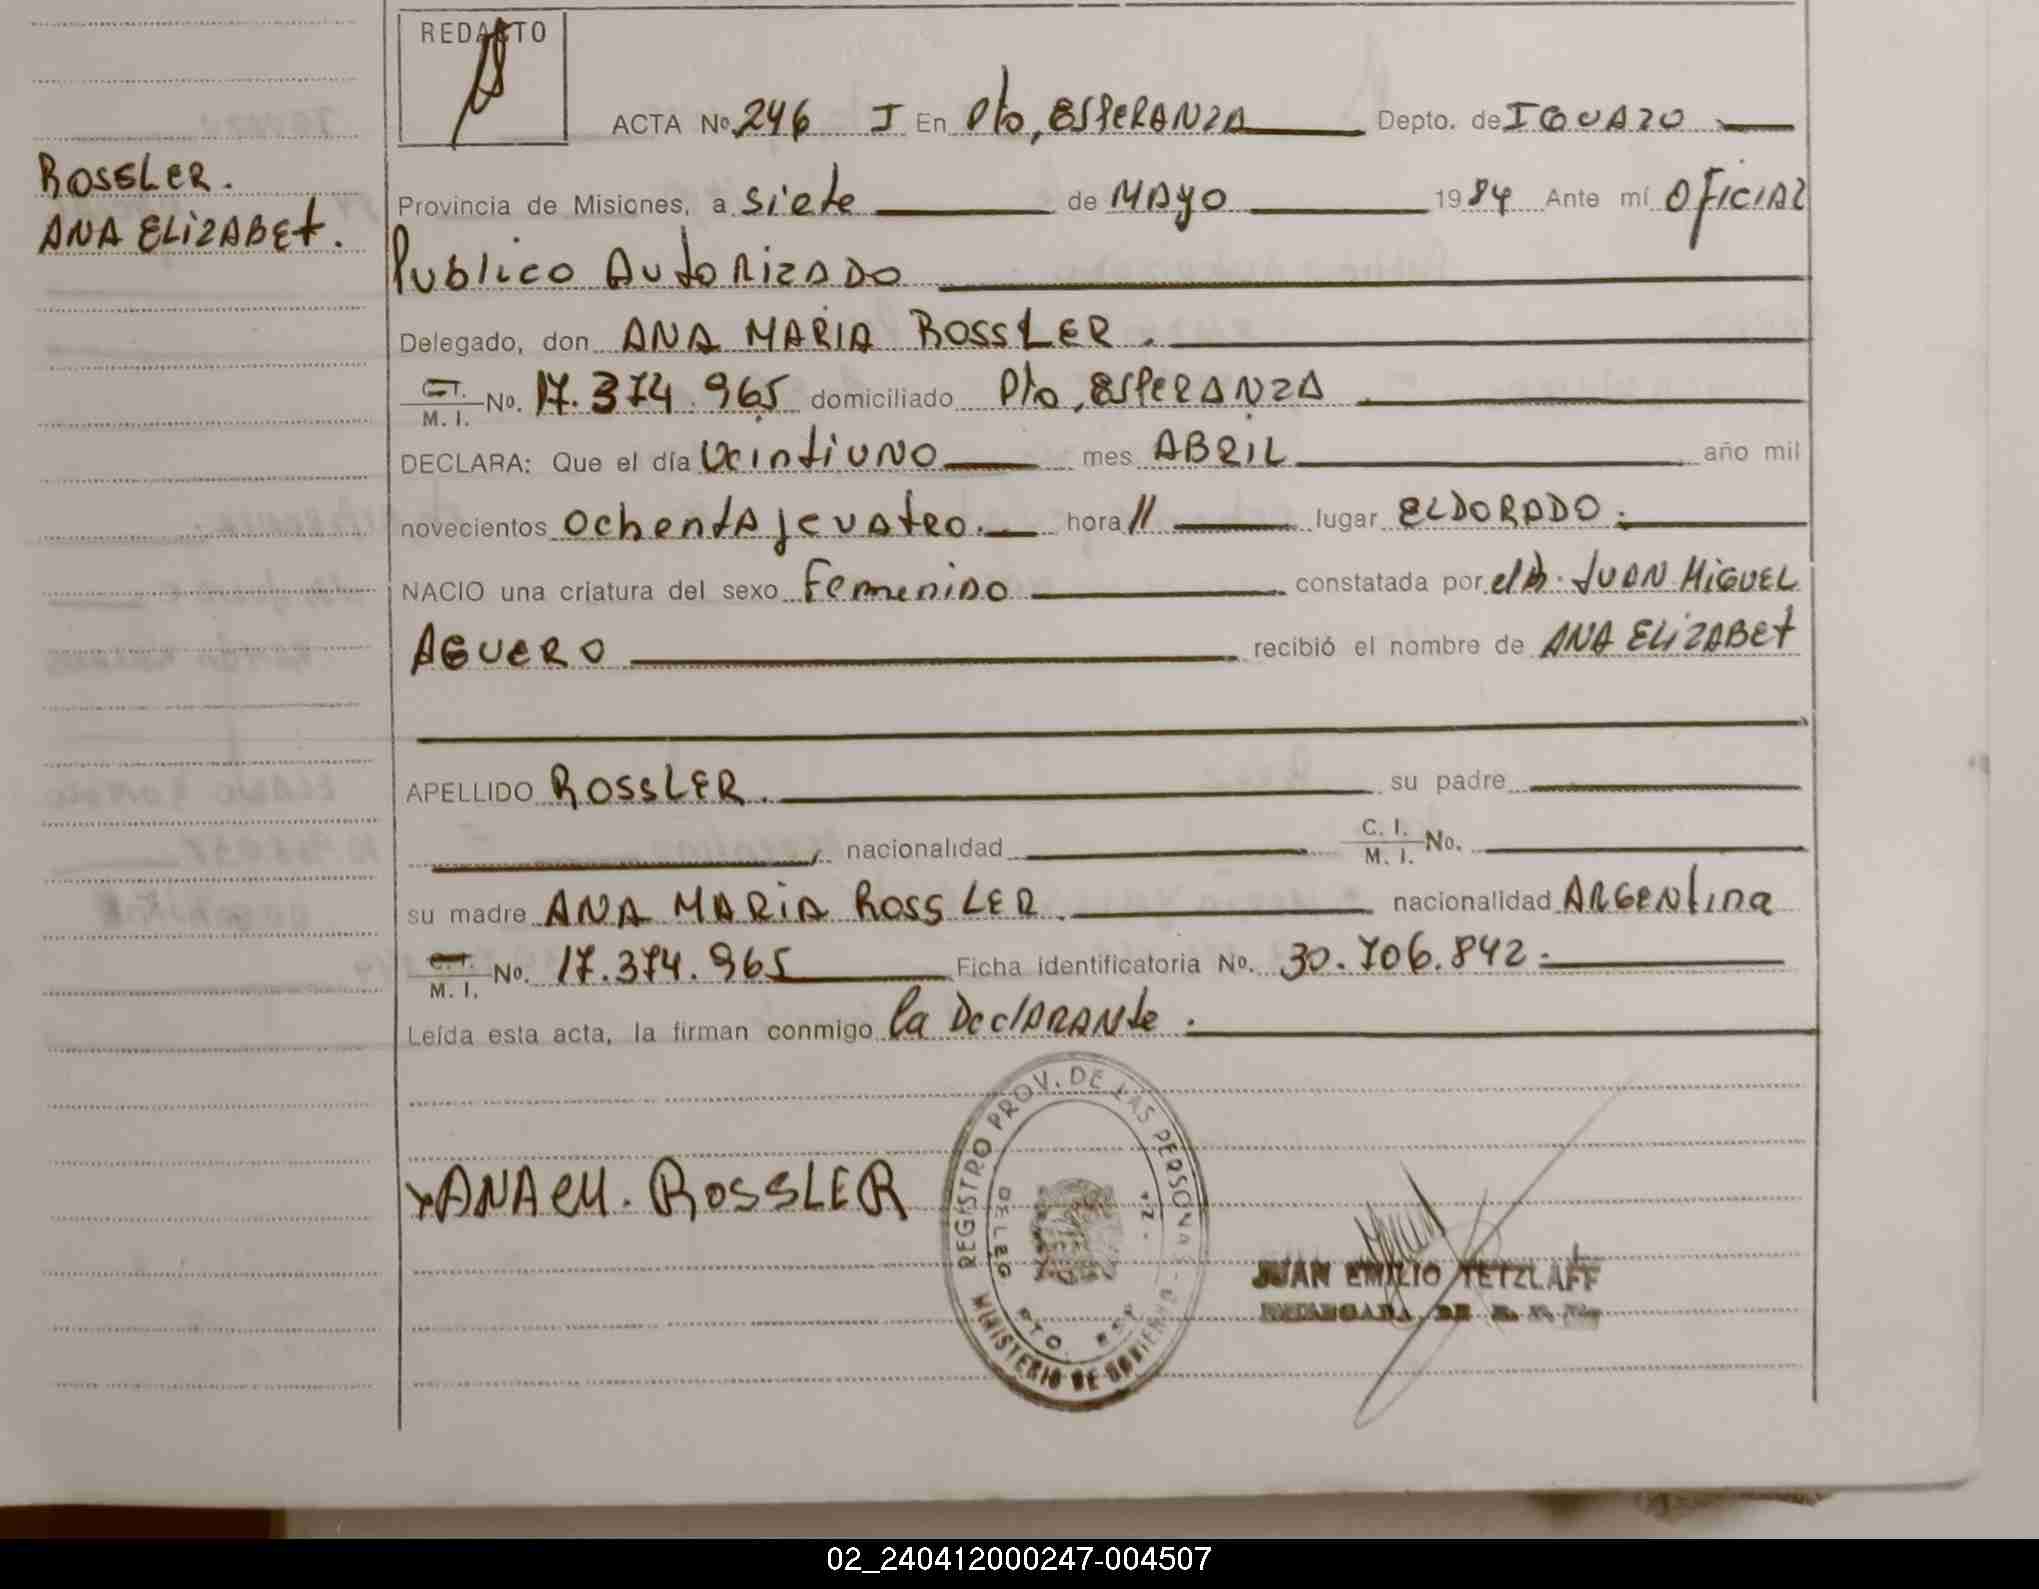 REDACTO
ACTA No. 246 I En Pto, ESPERANZA Depto. de IGUAZO
ROSSLER.
ANA ELIZABET.
Provincia de Misiones, a siete de MAYO 1984 Ante mí OFICIAL
Publico AutoRizADO
Delegado, don ANA MARIA ROSSLER.
C.I. M. I. No. 17.374.965 domiciliado Pto, ESPERANZA
DECLARA: Que el día Veintiuno mes ABRIL año mil
novecientos OchentA y cuAtro. hora 11 lugar ELDORADO.
NACIO una criatura del sexo Femenino constatada por el Dr. JUAN MIGUEL
AGUERO recibió el nombre de ANA ELIZABET
APELLIDO ROSSLER. su padre
, nacionalidad C. I. M. I. No.
su madre ANA MARIA ROSSLER. nacionalidad ARGENtina
C.I. M. I. No. 17.374.965 Ficha identificatoria No. 30.706.842.
Leída esta acta, la firman conmigo la DeclARANte.
REGISTRO PROV. DE LAS PERSONAS
MINISTERIO DE GOBIERNO
DELEG
PTO. ESP
ANA M. ROSSLER
JUAN EMILIO TETZLAFF
02_240412000247-004507